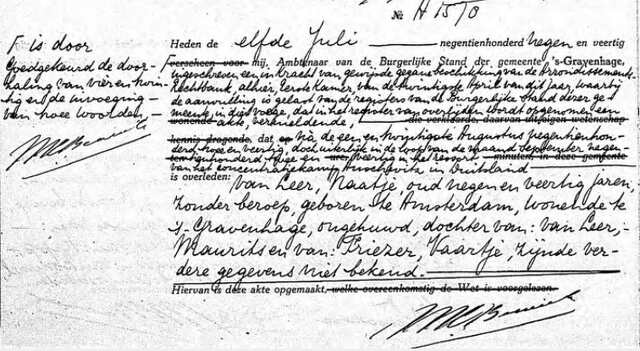 № A 1570
Heden de elfde Juli negentienhonderd negen en veertig
verscheen voor mij, Ambtenaar van de Burgerlijke Stand der gemeente 's-Gravenhage,
ingeschreven een in kracht van gewijsde gegane beschikking van de Arrondissements-
Rechtbank, alhier, Eerste Kamer, van de twintigste April van dit jaar, waarbij
de aanvulling is gelast van de registers van de Burgerlijke Stand dezer ge-
meente, in dier voege, dat in het register van overlijden wordt opgenomen een
wonende akte, vermeldende, die verklaarde, daarvan uit eigen wetenschap
kennis dragende, dat op na de een en twintigste Augustus negentienhon-
derd twee en veertig, doch uiterlijk in de loop van de maand September negen-
tienhonderd twee en veertig in het ressort minuten, in deze gemeente
van het concentratiekamp Auschwitz in Duitsland
is overleden:
van Leer, Naatje, oud negen en veertig jaren,
zonder beroep, geboren te Amsterdam, wonende te
's-Gravenhage, ongehuwd, dochter van: van Leer,
Maurits en van: Friezer, Vaartje, zijnde ver-
dere gegevens niet bekend.
Hiervan is deze akte opgemaakt, welke overeenkomstig de Wet is voorgelezen
F is door
Goedgekeurd de door-
haling van vier en twin-
tig en de invoeging
van twee woorden